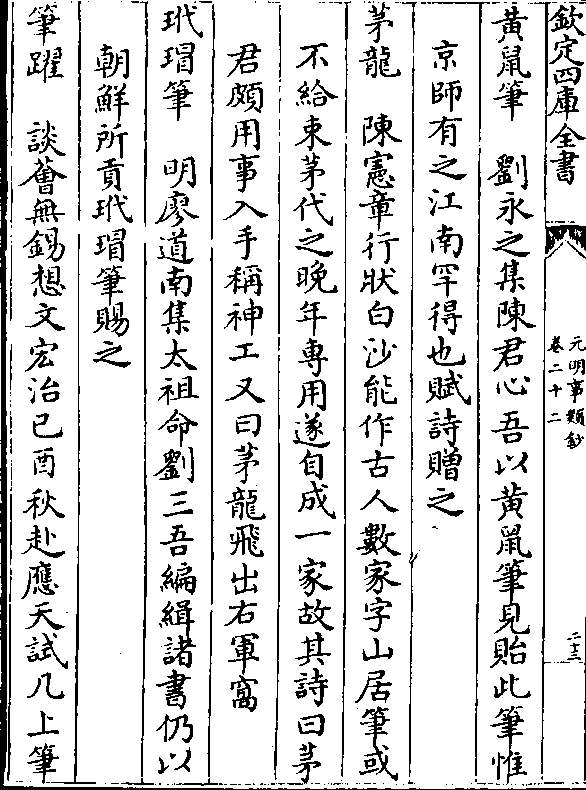 欽定四庫全書
元明事類鈔
卷二十二
二十三
黃鼠筆　劉永之集陳君心吾以黃鼠筆見貽此筆惟
京師有之江南罕得也賦詩贈之
茅龍　陳憲章行狀白沙能作古人數家字山居筆或
不給束茅代之晚年專用遂自成一家故其詩曰茅
君頗用事入手稱神工又曰茅龍飛出右軍窩
玳瑁筆　明廖道南集太祖命劉三吾編緝諸書仍以
朝鮮所貢玳瑁筆賜之
筆躍　談薈無錫想文宏治己酉秋赴應天試几上筆